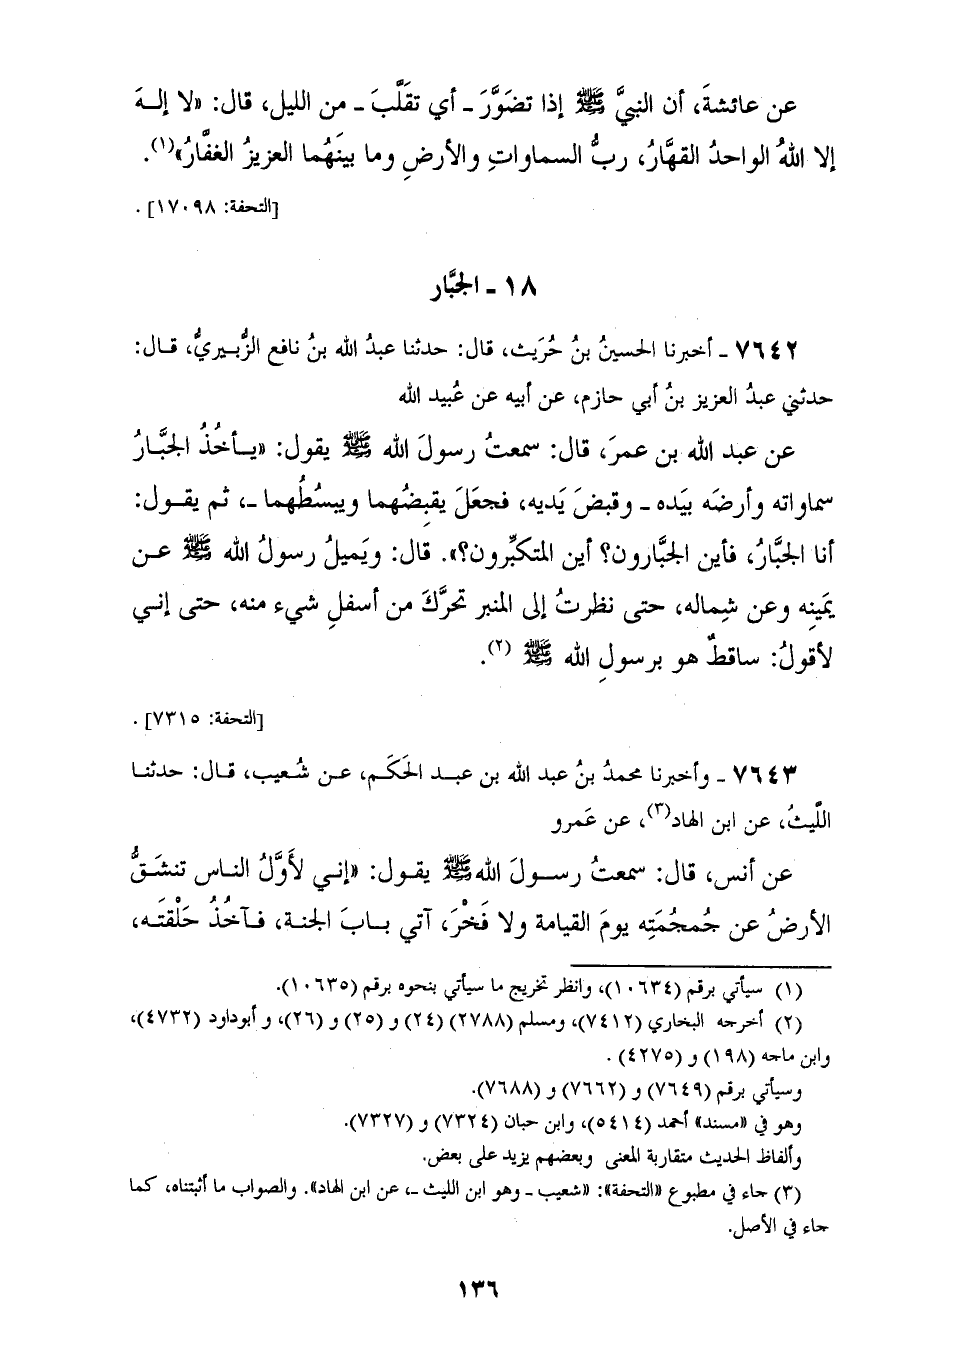 عن عائشةَ، أن النبيَّ ﷺ إذا تضَوَّرَ ـ أي تقلَّبَ ـ من الليل، قال: «لا إلـهَ
إلا اللهُ الواحدُ القهَّارُ، ربُّ السماواتِ والأرضِ وما بينَهُما العزيزُ الغفَّارُ»(١).
[التحفة: ١٧٠٩٨] .
١٨ ـ الجبَّار
٧٦٤٢ ـ أخبرنا الحسينُ بنُ حُرَيث، قال: حدثنا عبدُ الله بنُ نافع الزُّبـيريُّ، قـال:
حدثني عبدُ العزيز بنُ أبي حازم، عن أبيه عن عُبيد الله
عن عبد الله بن عمرَ، قال: سمعتُ رسولَ الله ﷺ يقول: «يـأخُذُ الجبَّارُ
سماواته وأرضَه بيَده ـ وقبضَ يَديه، فجعَلَ يقبِضُهما ويبسُطُهما ـ، ثم يقـول:
أنا الجبَّارُ، فأين الجبَّارون؟ أين المتكبِّرون؟». قال: ويَميلُ رسولُ الله ﷺ عـن
يمَينِه وعن شِماله، حتى نظرتُ إلى المنبر تحرَّكَ من أسفلِ شيء منه، حتى إنـي
لأقولُ: ساقطٌ هو برسولِ الله ﷺ (٢).
[التحفة: ٧٣١٥] .
٧٦٤٣ ـ وأخبرنا محمدُ بنُ عبد الله بن عبـد الحَكَـم، عـن شُـعيب، قـال: حدثنـا
اللَّيثُ، عن ابن الهاد(٣)، عن عَمرو
عن أنس، قال: سمعتُ رسـولَ الله ﷺ يقـول: «إنـي لأَوَّلُ النـاس تنشَـقُّ
الأرضُ عن جُمجُمَتِه يومَ القيامة ولا فَخْرَ، آتي بـابَ الجنة، فـآخُذُ حَلْقتَـه،
(١) سيأتي برقم (١٠٦٣٤)، وانظر تخريج ما سيأتي بنحوه برقم (١٠٦٣٥).
(٢) أخرجه البخاري (٧٤١٢)، ومسلم (٢٧٨٨) (٢٤) و (٢٥) و (٢٦)، و أبوداود (٤٧٣٢)،
وابن ماجه (١٩٨) و (٤٢٧٥) .
وسيأتي برقم (٧٦٤٩) و (٧٦٦٢) و (٧٦٨٨).
وهو في «مسند» أحمد (٥٤١٤)، وابن حبان (٧٣٢٤) و (٧٣٢٧).
وألفاظ الحديث متقاربة المعنى وبعضهم يزيد على بعض.
(٣) جاء في مطبوع «التحفة»: «شعيب ـ وهو ابن الليث ـ، عن ابن الهاد». والصواب ما أثبتناه، كما
جاء في الأصل.
١٣٦